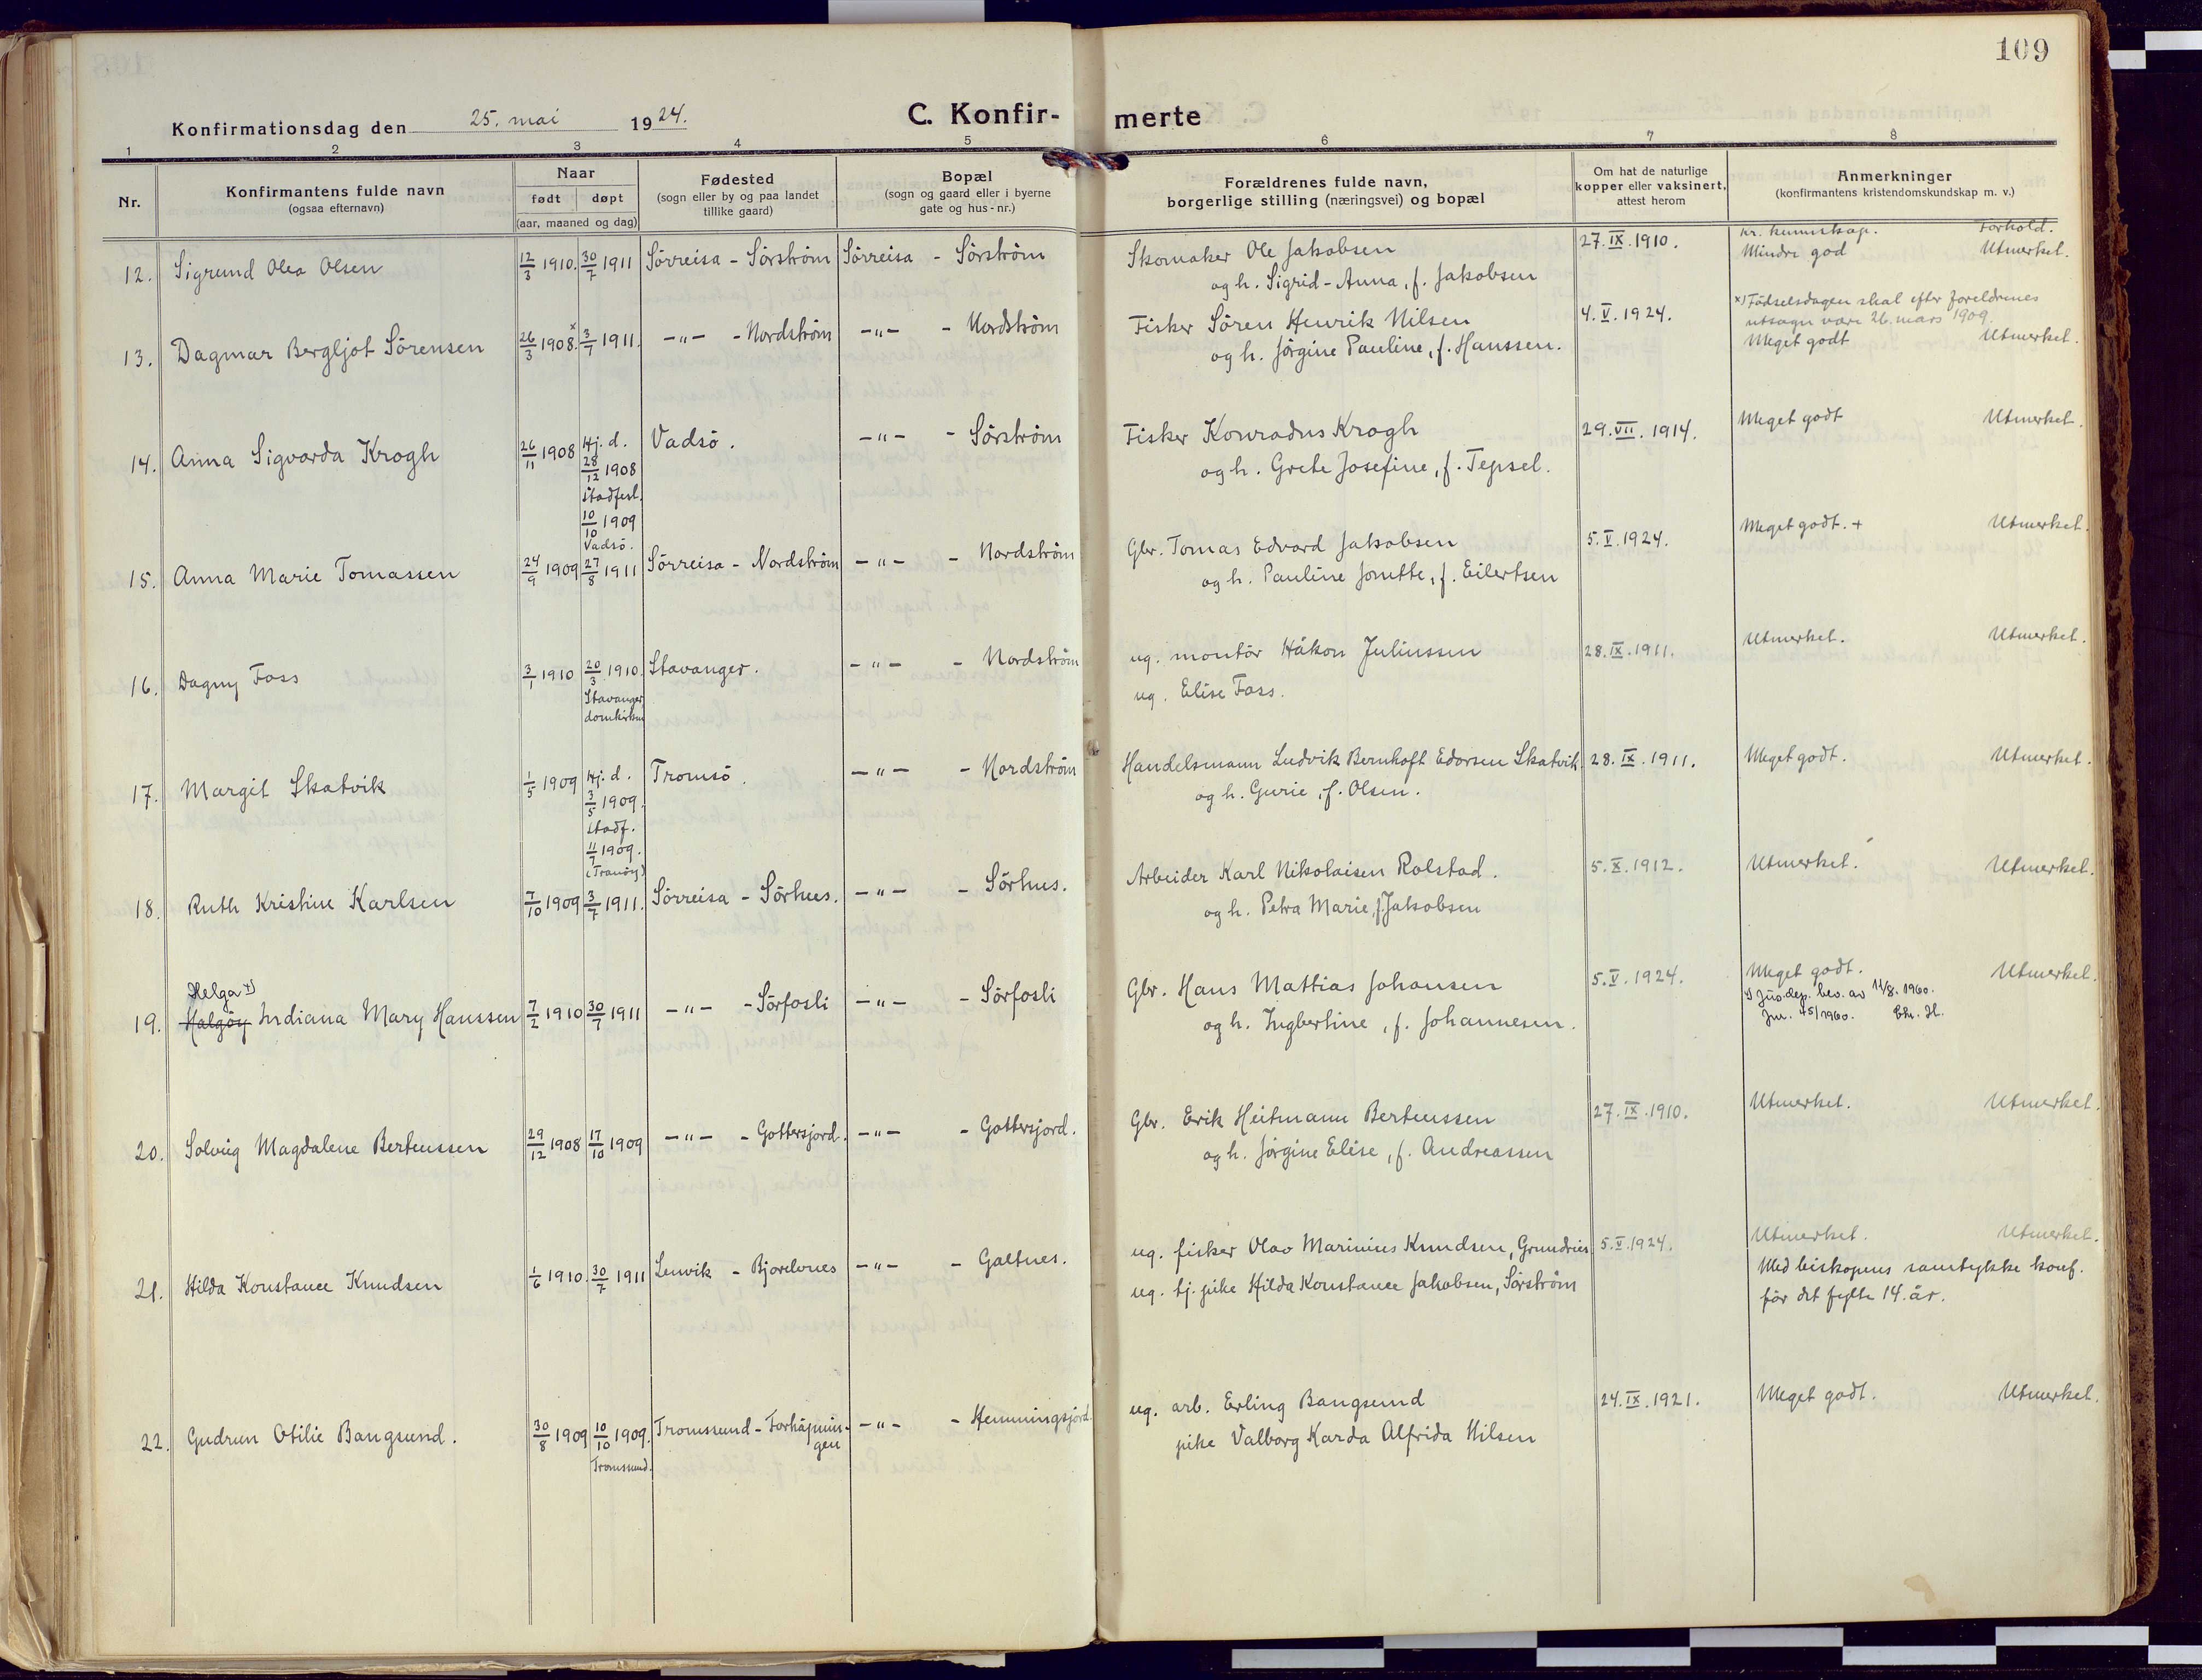 109
Konfirmationsdag den 25. mai 1924.
C. Konfir- merte
1 2 3 4 5 6 7 8
Nr.
Konfirmantens fulde navn
(ogsaa efternavn)
Naar
født døpt
(aar, maaned og dag)
Fødested
(sogn eller by og paa landet
tillike gaard)
Bopæl
(sogn og gaard eller i byerne
gate og hus-nr.)
Forældrenes fulde navn,
borgerlige stilling (næringsvei) og bopæl
Om hat de naturlige
kopper eller vaksinert,
attest herom
Anmerkninger
(konfirmantens kristendomskundskap m. v.)
kr. kunnskap. Forhold.
12. Sigrund Olea Olsen 12/3 1910. 30/7 1911 Sörreisa - Sörström Sörreisa - Sörström Skomaker Ole Jakobsen 27.IX.1910. Mindre god Utmerket.
og h. Sigrid-Anna, f. Jakobsen
x) Födselsdagen skal efter foreldrenes
utsagn være 26. mars 1909.
13. Dagmar Bergljot Sörensen 26/3 1908.x 3/7 1911. -"- - Nordström -"- - Nordström Fisker Sören Henrik Nilsen 4.V.1924. Meget godt Utmerket.
og h. Jörgine Pauline, f. Hanssen.
14. Anna Sigvarda Krogh 26/11 1908 Hj. d. Vadsö. -"- - Sörström Fisker Konradus Krogh 29.VII.1914. Meget godt Utmerket.
28/12 1908
stadfest.
10/10 1909
Vadsö.
og h. Grete Josefine, f. Tepsel.
15. Anna Marie Tomassen 24/9 1909 27/8 1911 Sörreisa - Nordström -"- - Nordström Gbr. Tomas Edvard Jakobsen 5.V.1924. Meget godt. + Utmerket.
og h. Pauline Jonette, f. Eilertsen
16. Dagny Foss 3/1 1910 20/3 1910. Stavanger. -"- - Nordström ug. montör Håkon Juliussen 28.IX.1911. Utmerket. Utmerket.
Stavanger
domkirken
ug. Elise Foss.
17. Margit Skatvik 1/5 1909 Hj. d. Tromsö. -"- - Nordström Handelsmann Ludvik Bernhoft Edorsen Skatvik 28.IX.1911. Meget godt. Utmerket.
3/5 1909.
stadf.
11/7 1909.
(Tranöy)
og h. Gurie, f. Olsen.
18. Ruth Kristine Karlsen 7/10 1909 3/7 1911. Sörreisa - Sörhus. -"- - Sörhus. Arbeider Karl Nikolaisen Rolstad. 5.X.1912. Utmerket. Utmerket.
og h. Petra Marie, f. Jakobsen
Helga x)
19. Halgöy Indiana Mary Hanssen 7/2 1910 30/7 1911 -"- - Sörfosli -"- - Sörfosli Gbr. Hans Mattias Johansen 5.V.1924. Meget godt. Utmerket.
x) Jus.dep. bev. av 11/8.1960.
Jnr. 45/1960. Chr. H.
og h. Ingbertine, f. Johannesen.
20. Solveig Magdalene Berteussen 29/12 1908 17/10 1909 -"- - Gottersjord. -"- - Gottersjord. Gbr. Erik Heitmann Berteussen 27.IX.1910. Utmerket. Utmerket.
og h. Jörgine Elise, f. Andreassen
21. Hilda Konstance Knudsen 1/6 1910. 30/7 1911 Lenvik - Bjorelvnes -"- - Galtnes. ug. fisker Olav Marinius Knudsen, Grundnes 5.V.1924. Utmerket. Utmerket.
ug. tj. pike Hilda Konstance Jakobsen, Sörström
Med biskopens samtykke konf.
för det fylte 14. år.
22. Gudrun Otilie Bangsund. 30/8 1909 10/10 1909. Tromsund - Forhåpnin-
gen -"- - Hemmingsjord. ug. arb. Erling Bangsund 24.IX.1921. Meget godt. Utmerket.
Tromsund.
pike Valborg Karda Alfrida Nilsen